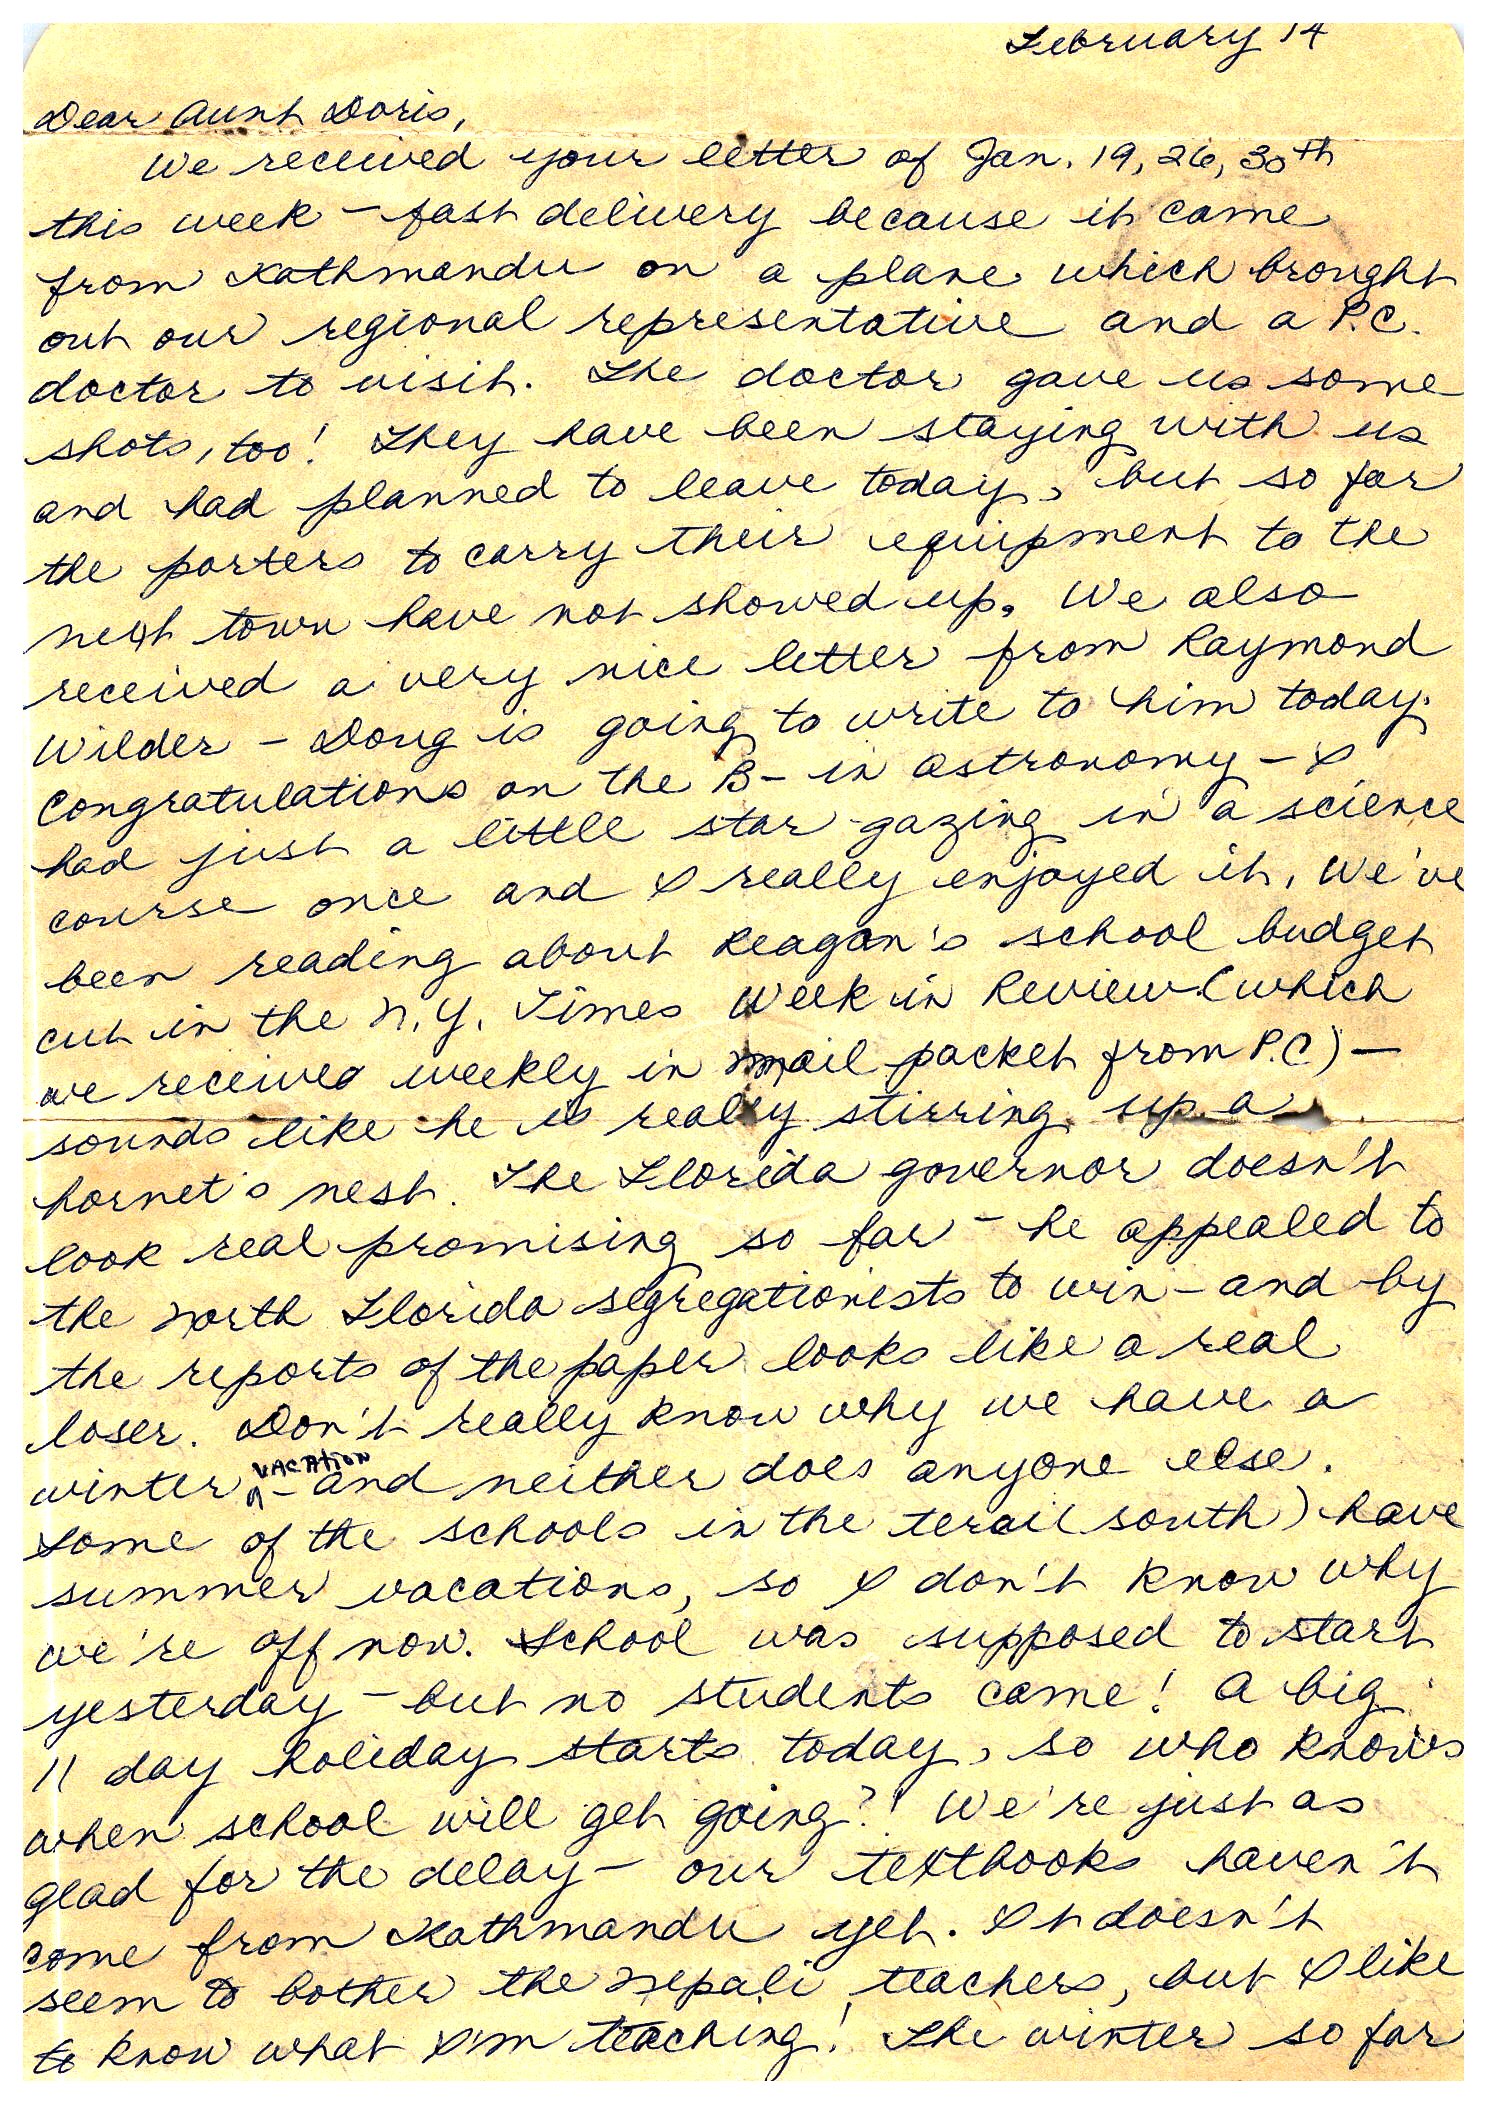 February 14
Dear Aunt Doris,
We received your letter of Jan. 19, 26, 30th
this week – fast delivery because it came
from Kathmandu on a plane which brought
out our regional representative and a P.C.
doctor to visit. The doctor gave us some
shots, too! They have been staying with us
and had planned to leave today, but so far
the porters to carry their equipment to the
next town have not showed up. We also
received a very nice letter from Raymond
Wilder – Doug is going to write to him today.
Congratulations on the B- in astronomy – I
had just a little star-gazing in a science
course once and I really enjoyed it. We've
been reading about Reagan's school budget
cut in the N.Y. Times Week in Review (which
we received weekly in mail packet from P.C.) –
sounds like he is really stirring up a
hornet's nest. The Florida governor doesn't
look real promising so far – he appealed to
the north Florida segregationists to win – and by
the reports of the paper looks like a real
loser. Don't really know why we have a
winter ^VACATION – and neither does anyone else.
Some of the schools in the terai (south) have
summer vacations, so I don't know why
we're off now. School was supposed to start
yesterday – but no students came! A big
11 day holiday starts today, so who knows
when school will get going?! We're just as
glad for the delay – our textbooks haven't
come from Kathmandu yet. It doesn't
seem to bother the Nepali teachers, but I like
to know what I'm teaching! The winter so far